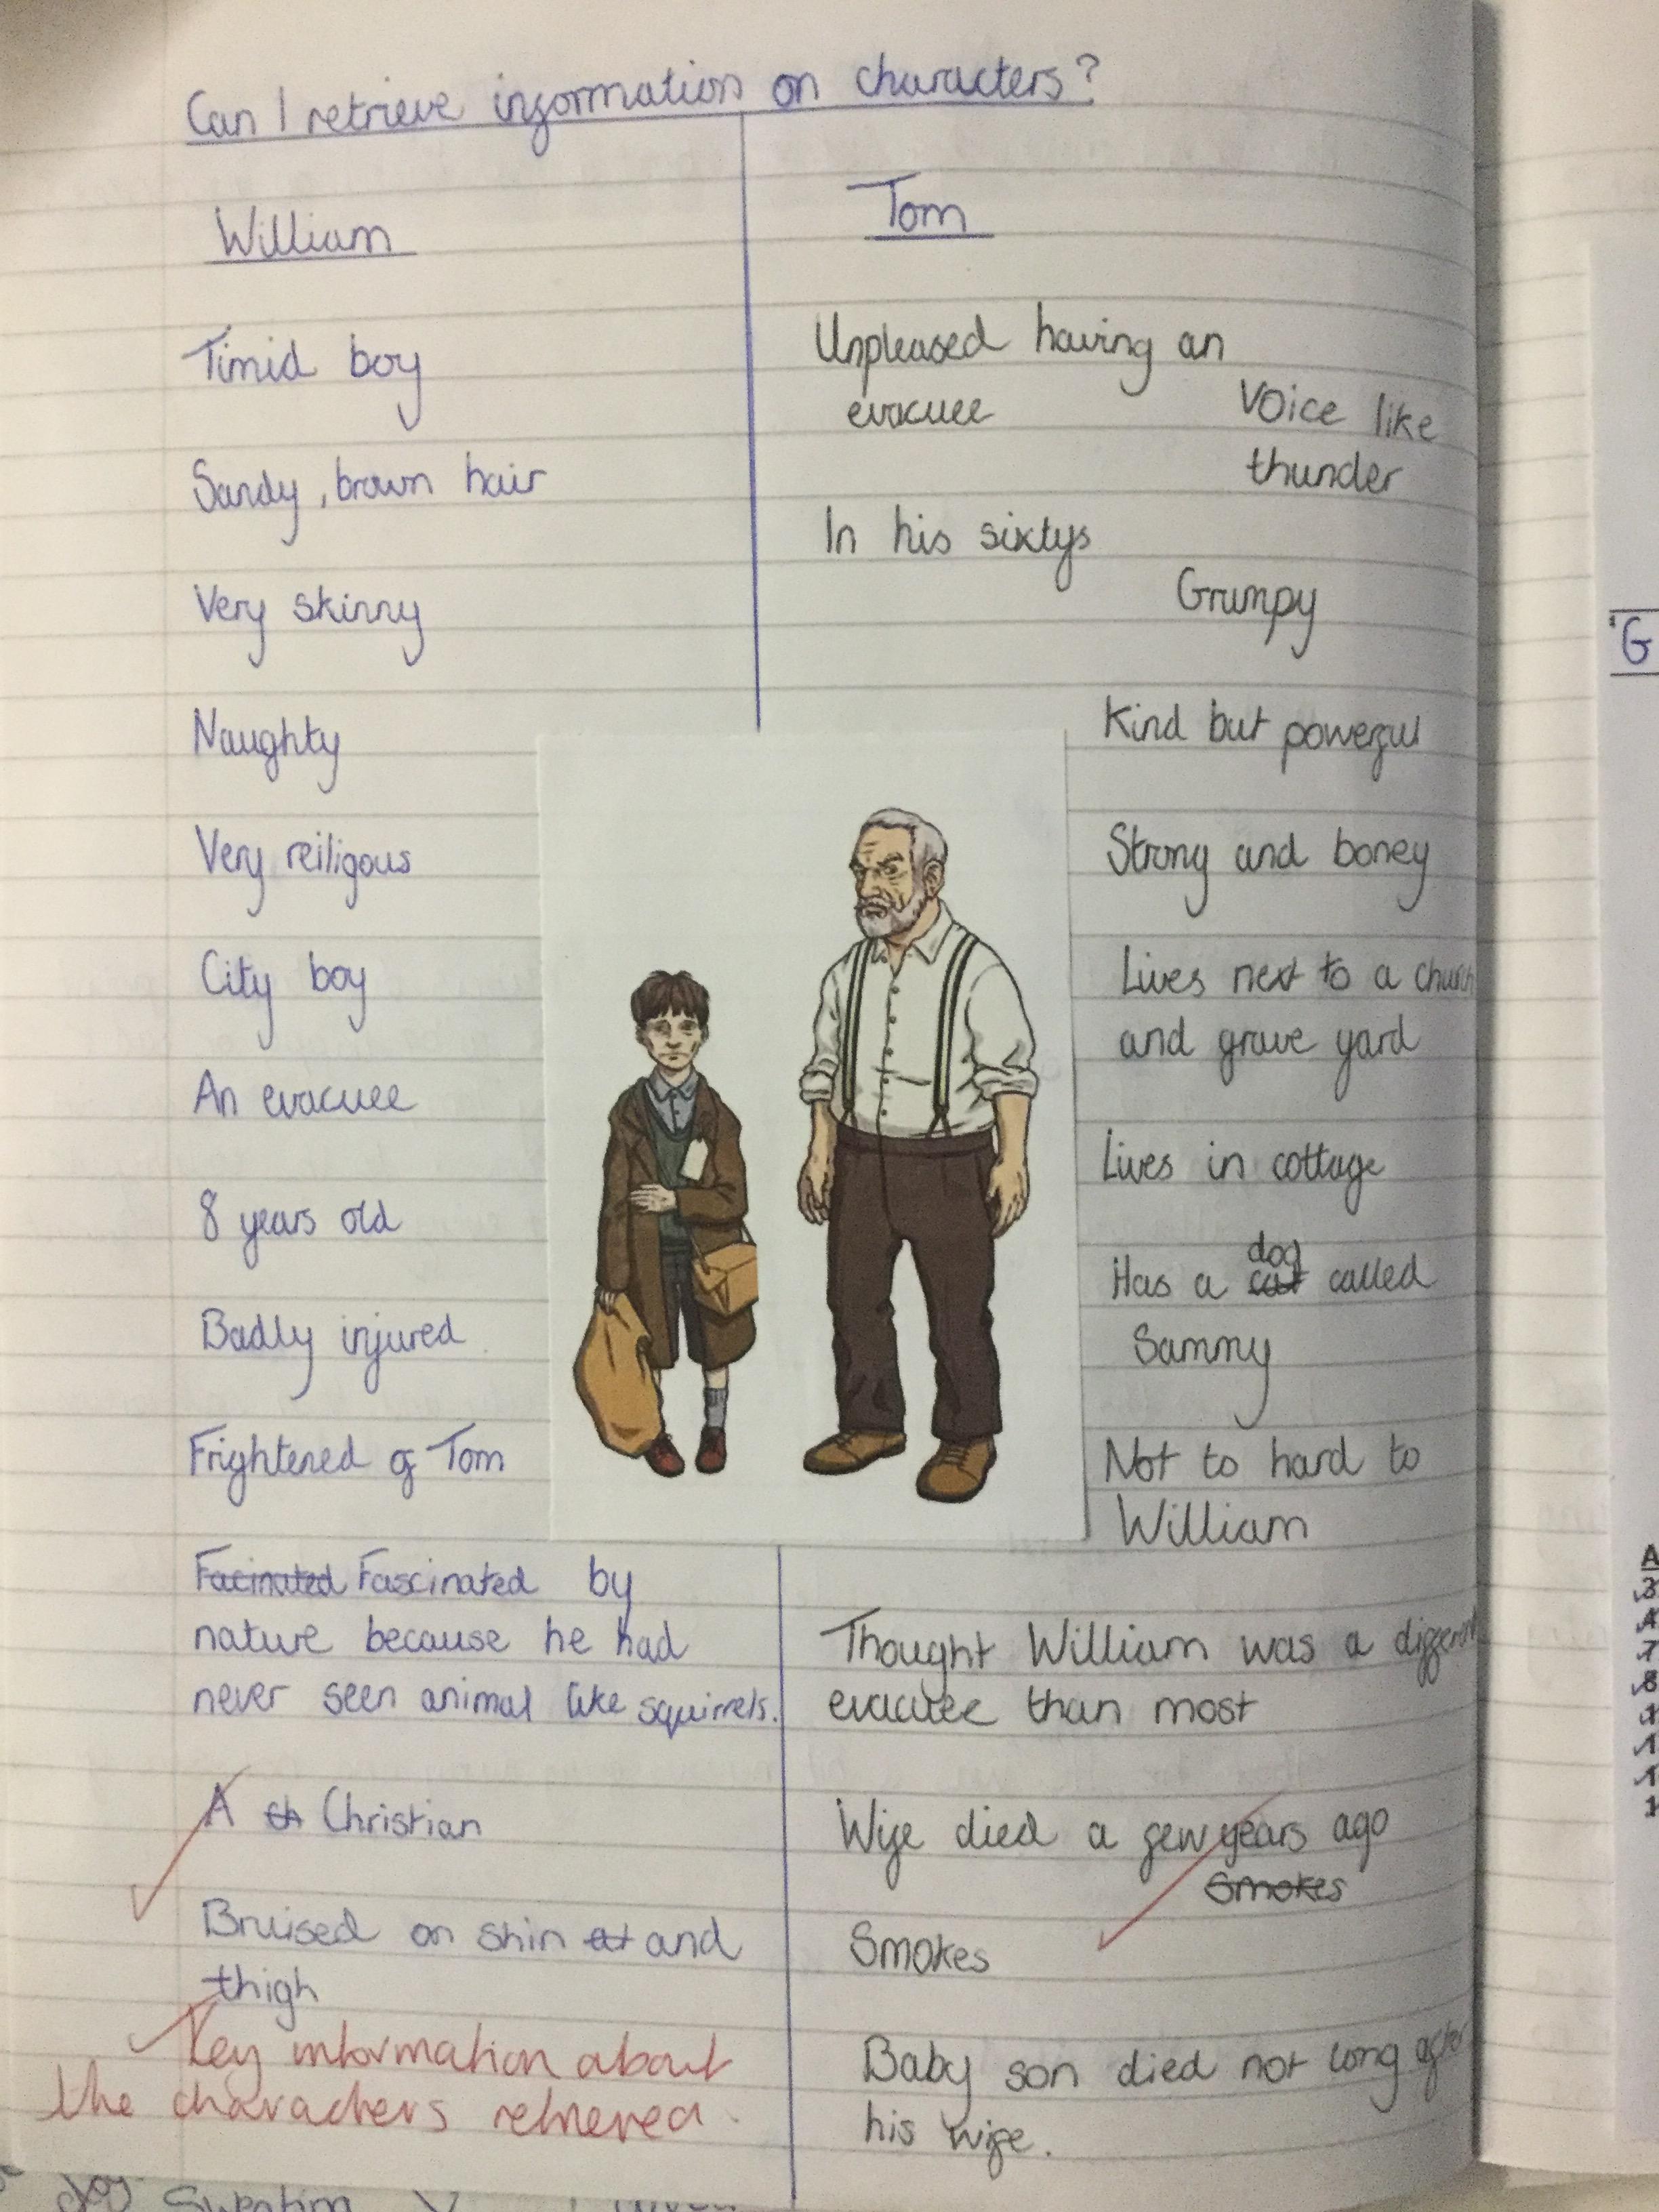 Can I retrieve information on characters?
William
Timid boy
Sandy, brown hair
Very skinny
Naughty
Very reiligous
City boy
An evacuee
8 years old
Badly injured
Frightened of Tom
Facinated Fascinated by
nature because he had
never seen animal like squirrels.
A ch Christian
Bruised on shin at and
thigh
Key information about
the characters retrieved.
Tom
Unpleased having an
evacuee
Voice like
thunder
In his sixtys
Grumpy
Kind but powerful
Strong and boney
Lives next to a church
and grave yard
Lives in cottage
Has a cat dog called
Sammy
Not to hard to
William
Thought William was a different
evacuee than most
Wife died a few years ago
Smokes
Smokes
Baby son died not long after
his wife.
'G
A
3
4
7
8
1
1
1
1
dog
Sweating